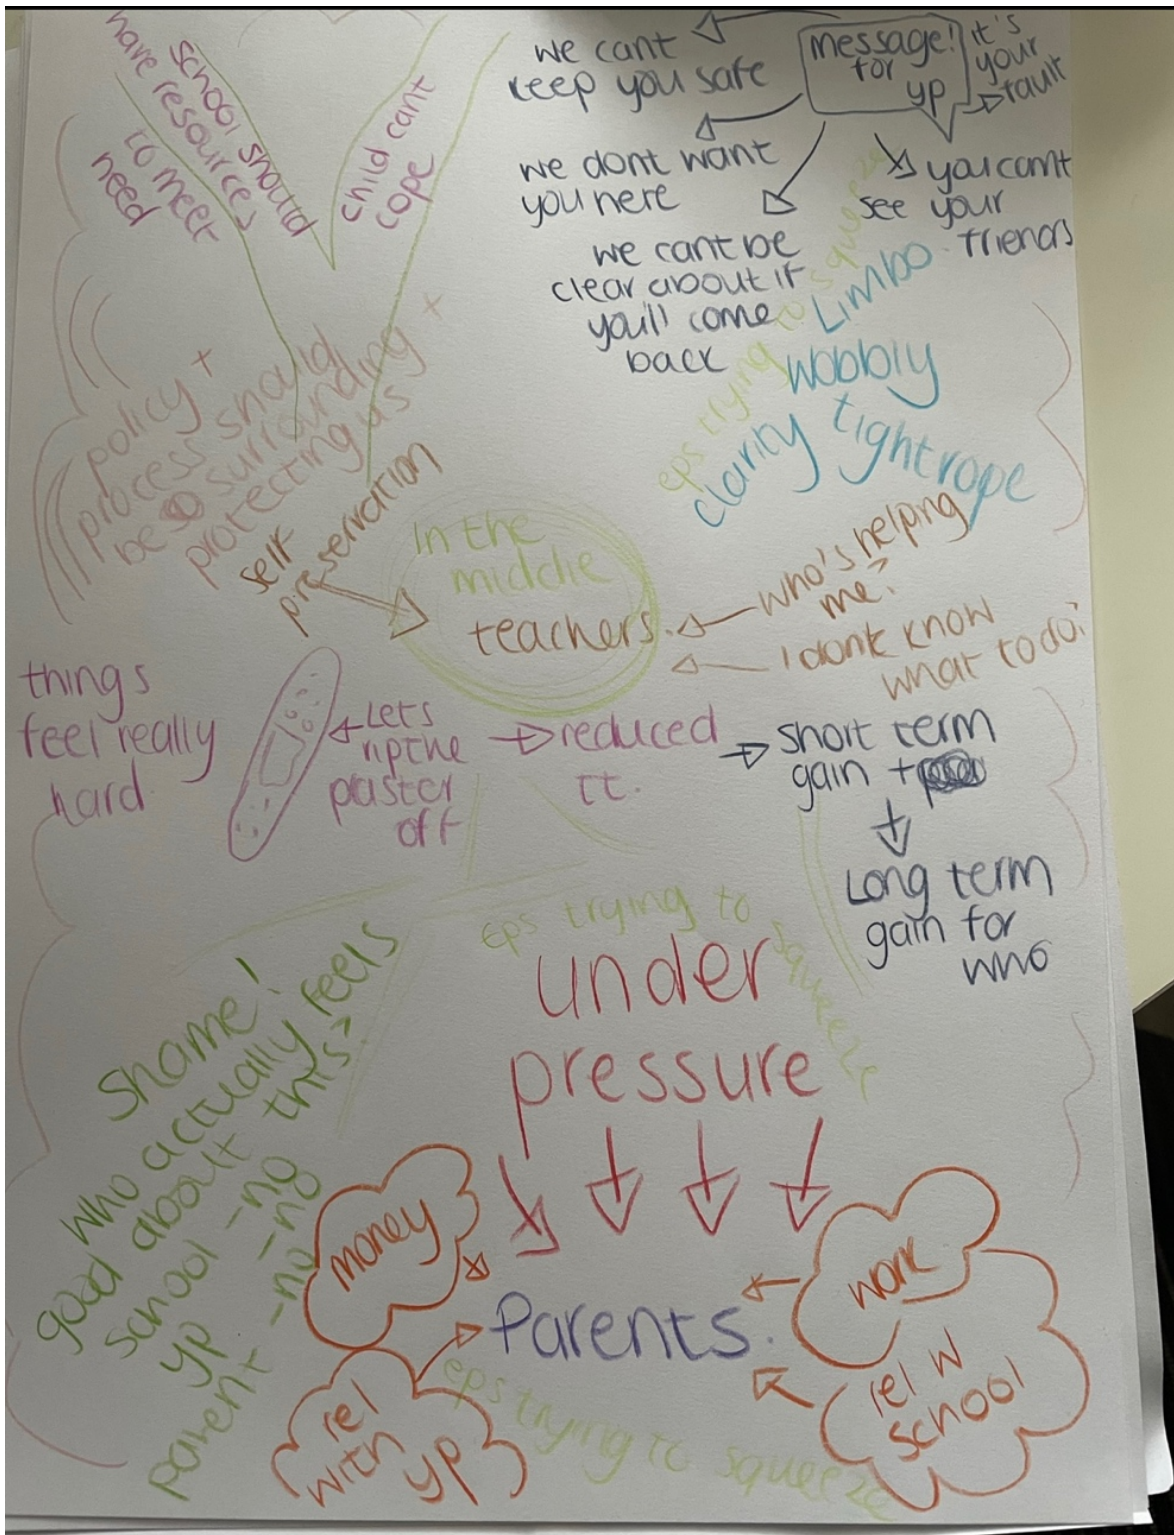 school should
have resources
to meet
need
child cant
cope
message!
for
yp
it's
your
fault
we cant
keep you safe
we dont want
you here
we cant be
clear about if
you'll come
back
you cant
see your
friends
Limbo
wobbly
clarity tightrope
eps trying to squeeze
policy +
process should
be surrounding +
protecting us
self
preservation
In the
middle
teachers.
who's helping
me?
I dont know
what to do!
things
feel really
hard
Lets
rip the
plaster
off
reduced
tt.
short term
gain +
Long term
gain for
who
eps trying to squeeze
under
pressure
shame!
who actually feels
good about this?
school - no
yp - no
parent - no
money
work
Parents.
rel
with
yp
rel w
school
eps trying to squeeze